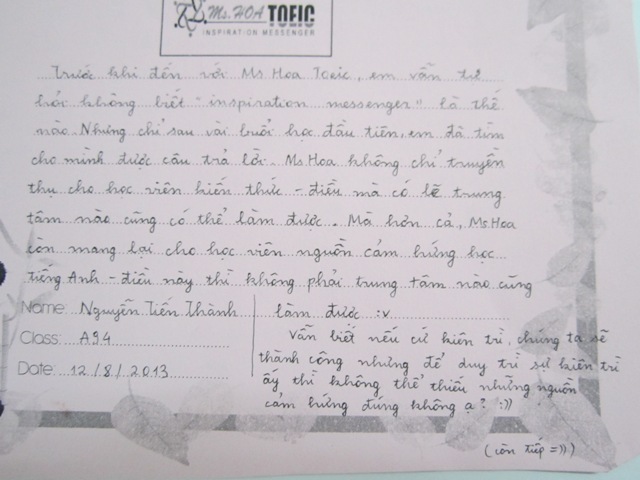 Ms. HOA TOEIC
INSPIRATION MESSENGER
Trước khi đến với Ms Hoa Toeic, em vẫn tự
hỏi không biết "inspiration messenger" là thế
nào. Nhưng chỉ sau vài buổi học đầu tiên, em đã tìm
cho mình được câu trả lời. Ms Hoa không chỉ truyền
thụ cho học viên kiến thức - điều mà có lẽ trung
tâm nào cũng có thể làm được. Mà hơn cả, Ms Hoa
còn mang lại cho học viên nguồn cảm hứng học
tiếng Anh - điều này thì không phải trung tâm nào cũng
làm được :v
Name: Nguyễn Tiến Thành
Class: A94
Date: 12/8/2013
Vẫn biết nếu cứ kiên trì, chúng ta sẽ
thành công nhưng để duy trì sự kiên trì
ấy thì không thể thiếu những nguồn
cảm hứng đúng không ạ? :))
(còn tiếp =)))